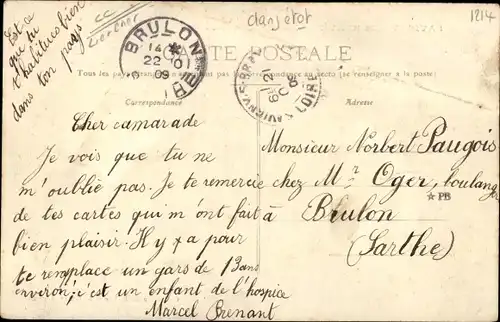 Est ce
que tu
t'habitues bien
dans ton pays
1214
BRULON
22 10
09
CARTE POSTALE
Tous les pays étrangers n'acceptent pas la correspondance au recto (se renseigner à la poste)
Correspondance
Adresse
LOIRE
Cher camarade
Je vois que tu ne
m'oublie pas. Je te remercie
de tes cartes qui m'ont fait
bien plaisir. Il y a pour
te remplace un gars de 13 ans
environ, c'est un enfant de l'hospice
Marcel Brenant
Monsieur Norbert Paugois
chez Mr Oger, boulanger
☆ PB
à Brulon
(Sarthe)